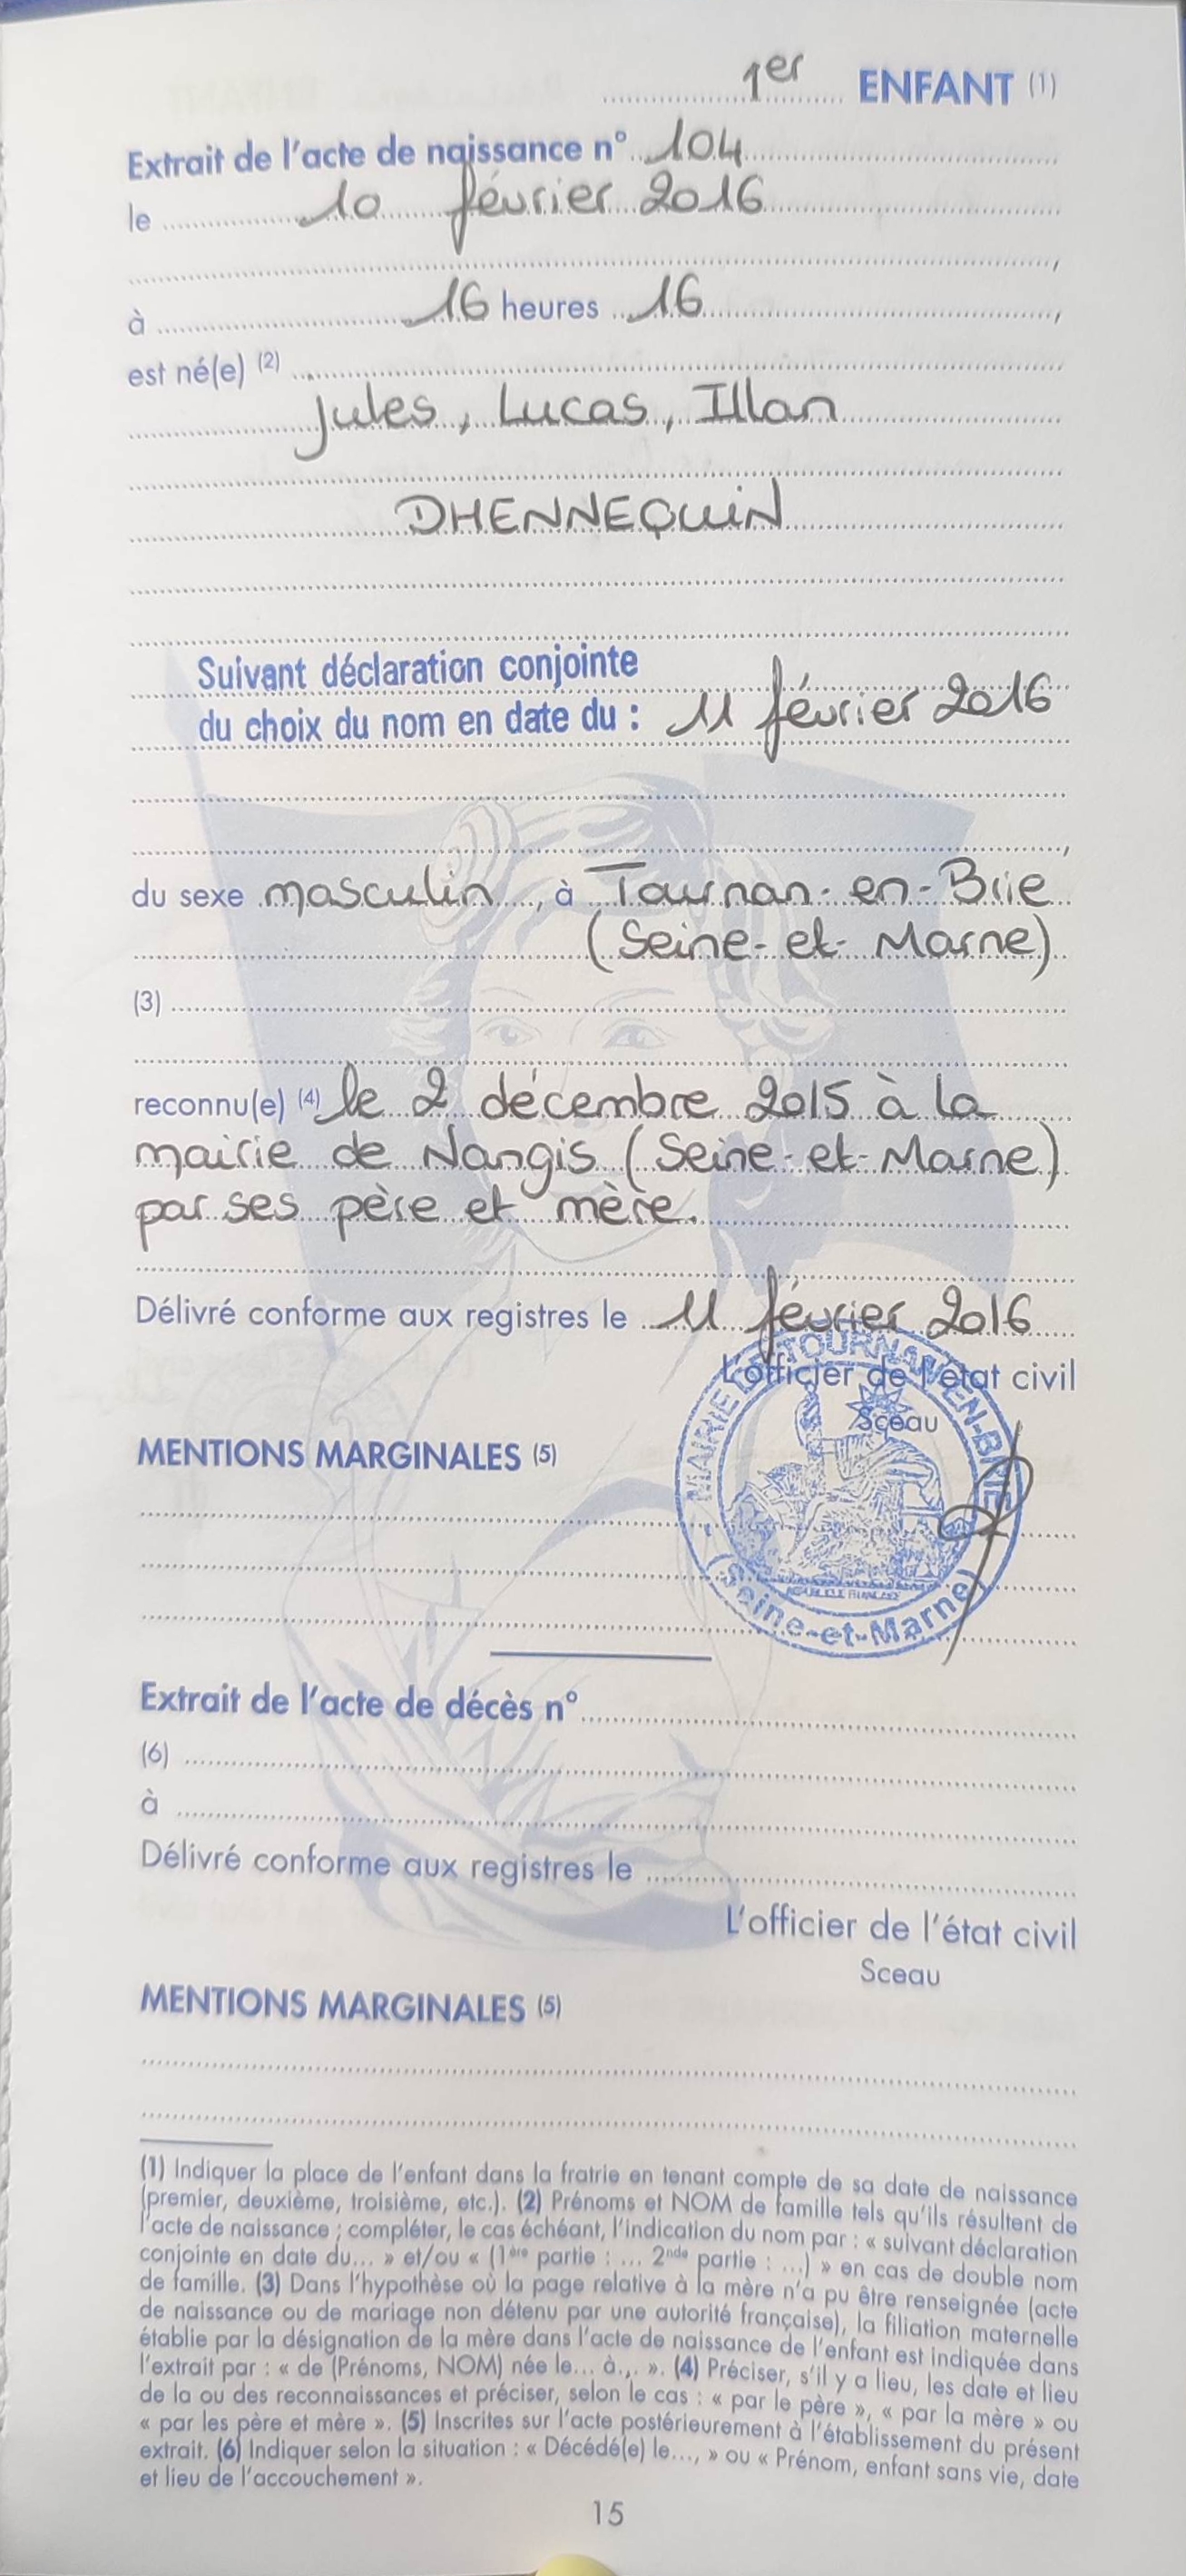 1er ENFANT (1)
Extrait de l'acte de naissance n° 104
le 10 février 2016
,
à 16 heures 16 ,
est né(e) (2)
Jules, Lucas, Illan
DHENNEQUIN
Suivant déclaration conjointe
du choix du nom en date du : 11 février 2016
,
du sexe masculin , à Tournan-en-Brie
(Seine-et-Marne)
(3)
reconnu(e) (4) le 2 décembre 2015 à la
mairie de Nangis (Seine-et-Marne)
par ses père et mère.
Délivré conforme aux registres le 11 février 2016
L'officier de l'état civil
Sceau
MAIRIE DE TOURNAN-EN-BRIE
RÉPUBLIQUE FRANÇAISE
(Seine-et-Marne)
MENTIONS MARGINALES (5)
Extrait de l'acte de décès n°
(6)
à
Délivré conforme aux registres le
L'officier de l'état civil
Sceau
MENTIONS MARGINALES (5)
(1) Indiquer la place de l'enfant dans la fratrie en tenant compte de sa date de naissance
(premier, deuxième, troisième, etc.). (2) Prénoms et NOM de famille tels qu'ils résultent de
l'acte de naissance ; compléter, le cas échéant, l'indication du nom par : « suivant déclaration
conjointe en date du... » et/ou « (1ère partie : ... 2nde partie : ...) » en cas de double nom
de famille. (3) Dans l'hypothèse où la page relative à la mère n'a pu être renseignée (acte
de naissance ou de mariage non détenu par une autorité française), la filiation maternelle
établie par la désignation de la mère dans l'acte de naissance de l'enfant est indiquée dans
l'extrait par : « de (Prénoms, NOM) née le... à... ». (4) Préciser, s'il y a lieu, les date et lieu
de la ou des reconnaissances et préciser, selon le cas : « par le père », « par la mère » ou
« par les père et mère ». (5) Inscrites sur l'acte postérieurement à l'établissement du présent
extrait. (6) Indiquer selon la situation : « Décédé(e) le..., » ou « Prénom, enfant sans vie, date
et lieu de l'accouchement ».
15